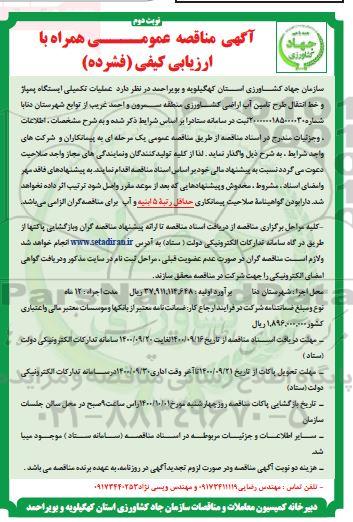 نوبت دوم
آگهی مناقصه عمومی همراه با
ارزیابی کیفی (فشرده)
جهاد کشاورزی
سازمان جهاد کشاورزی استان کهگیلویه و بویراحمد در نظر دارد عملیات تکمیلی ایستگاه پمپاژ
و خط انتقال طرح تامین آب اراضی کشاورزی منطقه سرون و احمد غریب از توابع شهرستان دنا با
شماره ۲۰۰۰۰۰۰۱۸۵۰۰۰۰۳۰ ثبت در سامانه ستاد را بر اساس شرایط ذکر شده و به شرح مشخصات ، اطلاعات
، وجزئیات مندرج در اسناد مناقصه از طریق مناقصه عمومی یک مرحله ای به پیمانکاران و شرکت های
واجد شرایط ، به شرح ذیل واگذار نماید . لذا از کلیه تولیدکنندگان ونمایندگی های مجاز واجد صلاحیت
دعوت می گردد نسبت به پیشنهاد مالی خود بر اساس اسناد مناقصه اقدام نمایند. به پیشنهادهای فاقد مهر
وامضای اسناد ، مشروط ، مخدوش و پیشنهادهایی که بعد از موعد مقرر واصل شود ترتیب اثر داده نخواهد
شد. دارابودن گواهینامۀ صلاحیت پیمانکاری حداقل رتبۀ ۵ ابنیه و آب برای مناقصه گران الزامی می‌باشد.
-کلیه مراحل برگزاری مناقصه از دریافت اسناد مناقصه تا ارائه پیشنهاد مناقصه گران وبازگشایی پاکتها از
طریق در گاه سامانه تدارکات الکترونیکی دولت ( ستاد) به آدرس www.setadiran.ir انجام خواهد شد
ولازم است مناقصه گران در صورت عدم عضویت قبلی ، مراحل ثبت نام در سایت مذکور ودریافت گواهی
امضای الکترونیکی را جهت شرکت در مناقصه محقق سازند.
محل اجرا: شهرستان دنا بر آورد اولیه : ۳۷,۹۱۱,۱۱۴,۶۴۸ ریال مدت اجراء: ۱۲ ماه
نوع ومبلغ ضمانتنامه شرکت در فرایند ارجاع کار: ضمانت نامه معتبر از بانکها وموسسات معتبر مالی واعتباری
کشور ۱,۸۹۶,۰۰۰,۰۰۰ ریال
– مهلت دریافت اسناد مناقصه از تاریخ ۱۴۰۰/۰۹/۱۶ لغایت ۱۴۰۰/۰۹/۲۰ سامانه تدارکات الکترونیکی دولت
(ستاد)
– مهلت تحویل پاکات از تاریخ ۱۴۰۰/۰۹/۲۱ تا آخر وقت اداری ۱۴۰۰/۰۹/۳۰ درسامانه تدارکات الکترونیکی
دولت (ستاد)
– تاریخ بازگشایی پاکات مناقصه روز چهارشنبه مورخ ۱۴۰۰/۱۰/۰۱ راس ساعت ۹ صبح در محل سالن جلسات
سازمان
– سایر اطلاعات و جزئیات مربوطه در اسناد مناقصه (سامانه ستاد ) موجود میبا
شد.
– هزینه دو نوبت آگهی مناقصه ودر صورت لزوم تجدید آگهی در روزنامه، به عهده برنده مناقصه می باشد .
– تلفن تماس : مهندس رضایی ۰۹۱۷۳۴۱۱۱۱۹ و مهندس ویسی نژاد ۰۹۱۷۳۴۴۰۲۵۳
دبیرخانه کمیسیون معاملات و مناقصات سازمان جاد کشاورزی استان کهگیلویه و بویراحمد